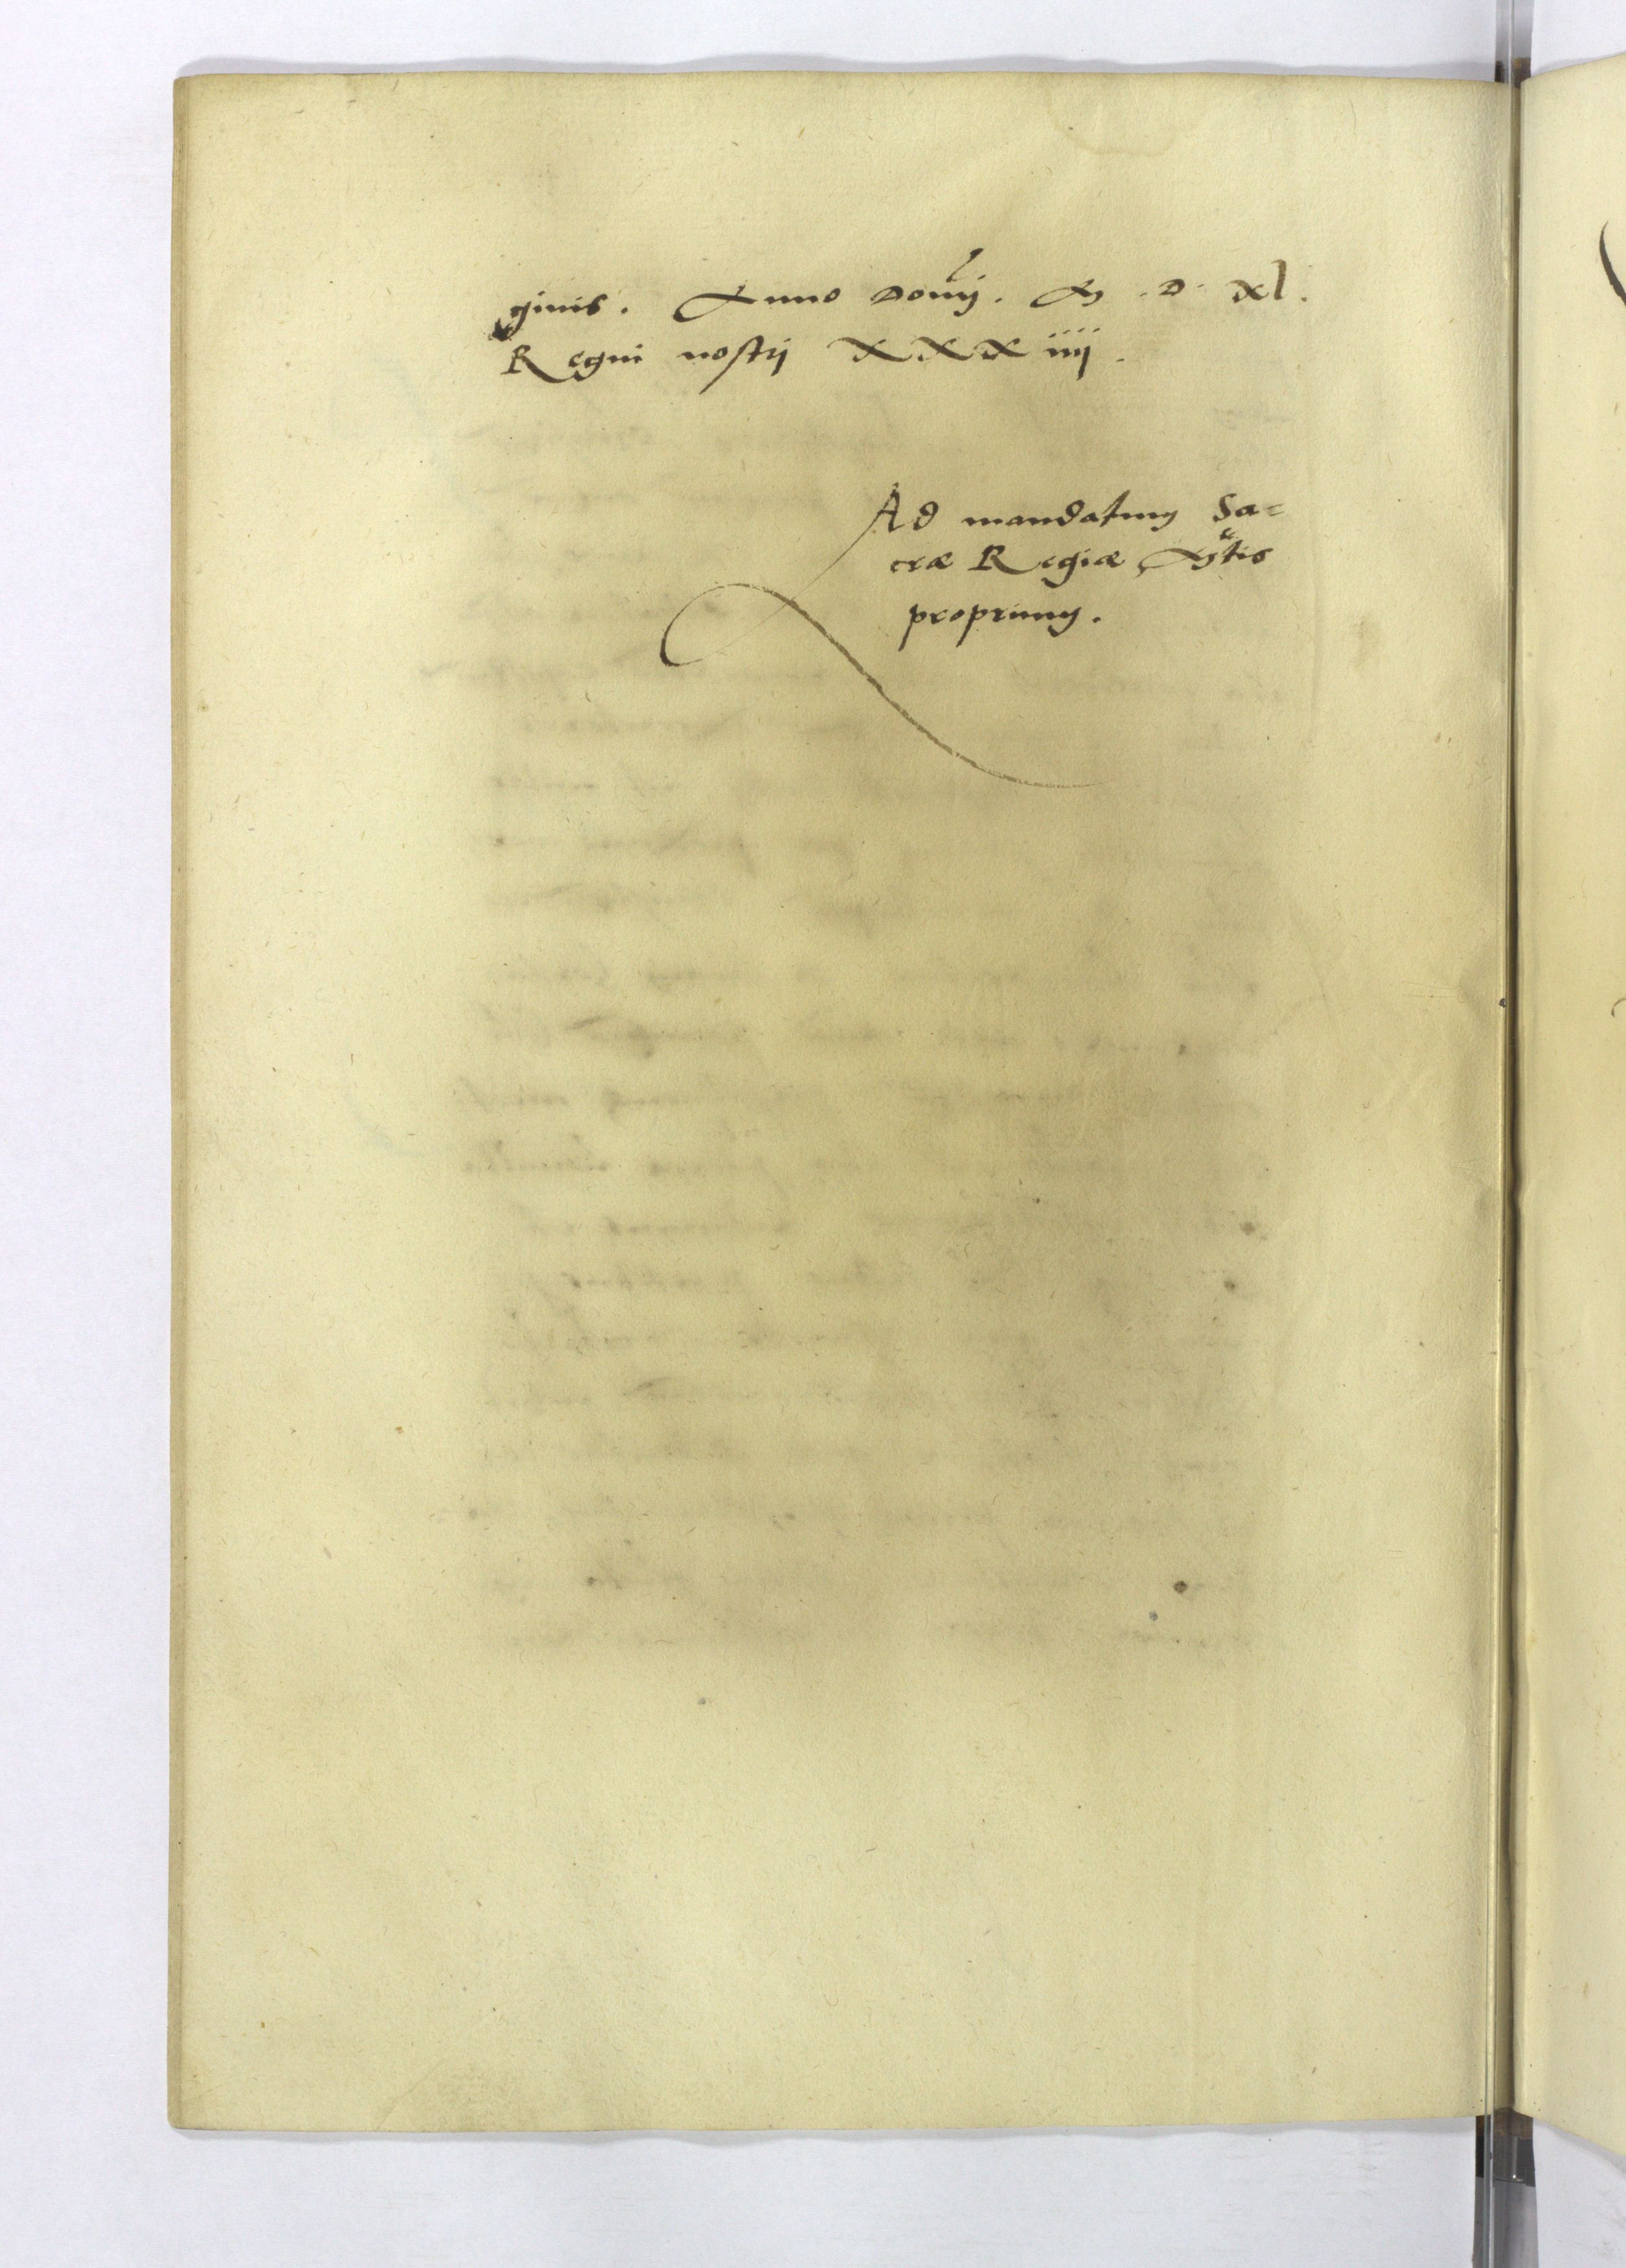 ginis. Anno Domi̅j. M. D. xl.
Regni nostrj XXXiiij.
Ad mandatum Sa=
cræ Regiæ Mᵗtis
proprium.